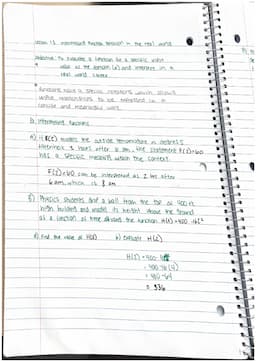 Lesson 13 Interpreting Function Notation in the real world
Objective: to evaluate a function for a specific input
value of the domain (x) and interpret in a
real world context
* Functions have a special notations which allows
us/the relationships to be expressed in a
concise and meaningful way.
Interpreting Functions
A) If F(t) models the outside temperature in degrees
Fahrenheit t hours after 6 am. The statement F(2)=60
has a specific meaning within the context.
F(2)=60 can be interpreted as 2 hrs after
6 am, which is 8 am
B) Physics students drop a ball from the top of 400 ft
high building and model its height above the ground
as a function of time all using the function H(t)=400-16t²
a) Find the value of H(0) b) evaluate H(2)
H(2)=400-
=400-16(4)
=400-64
= 336